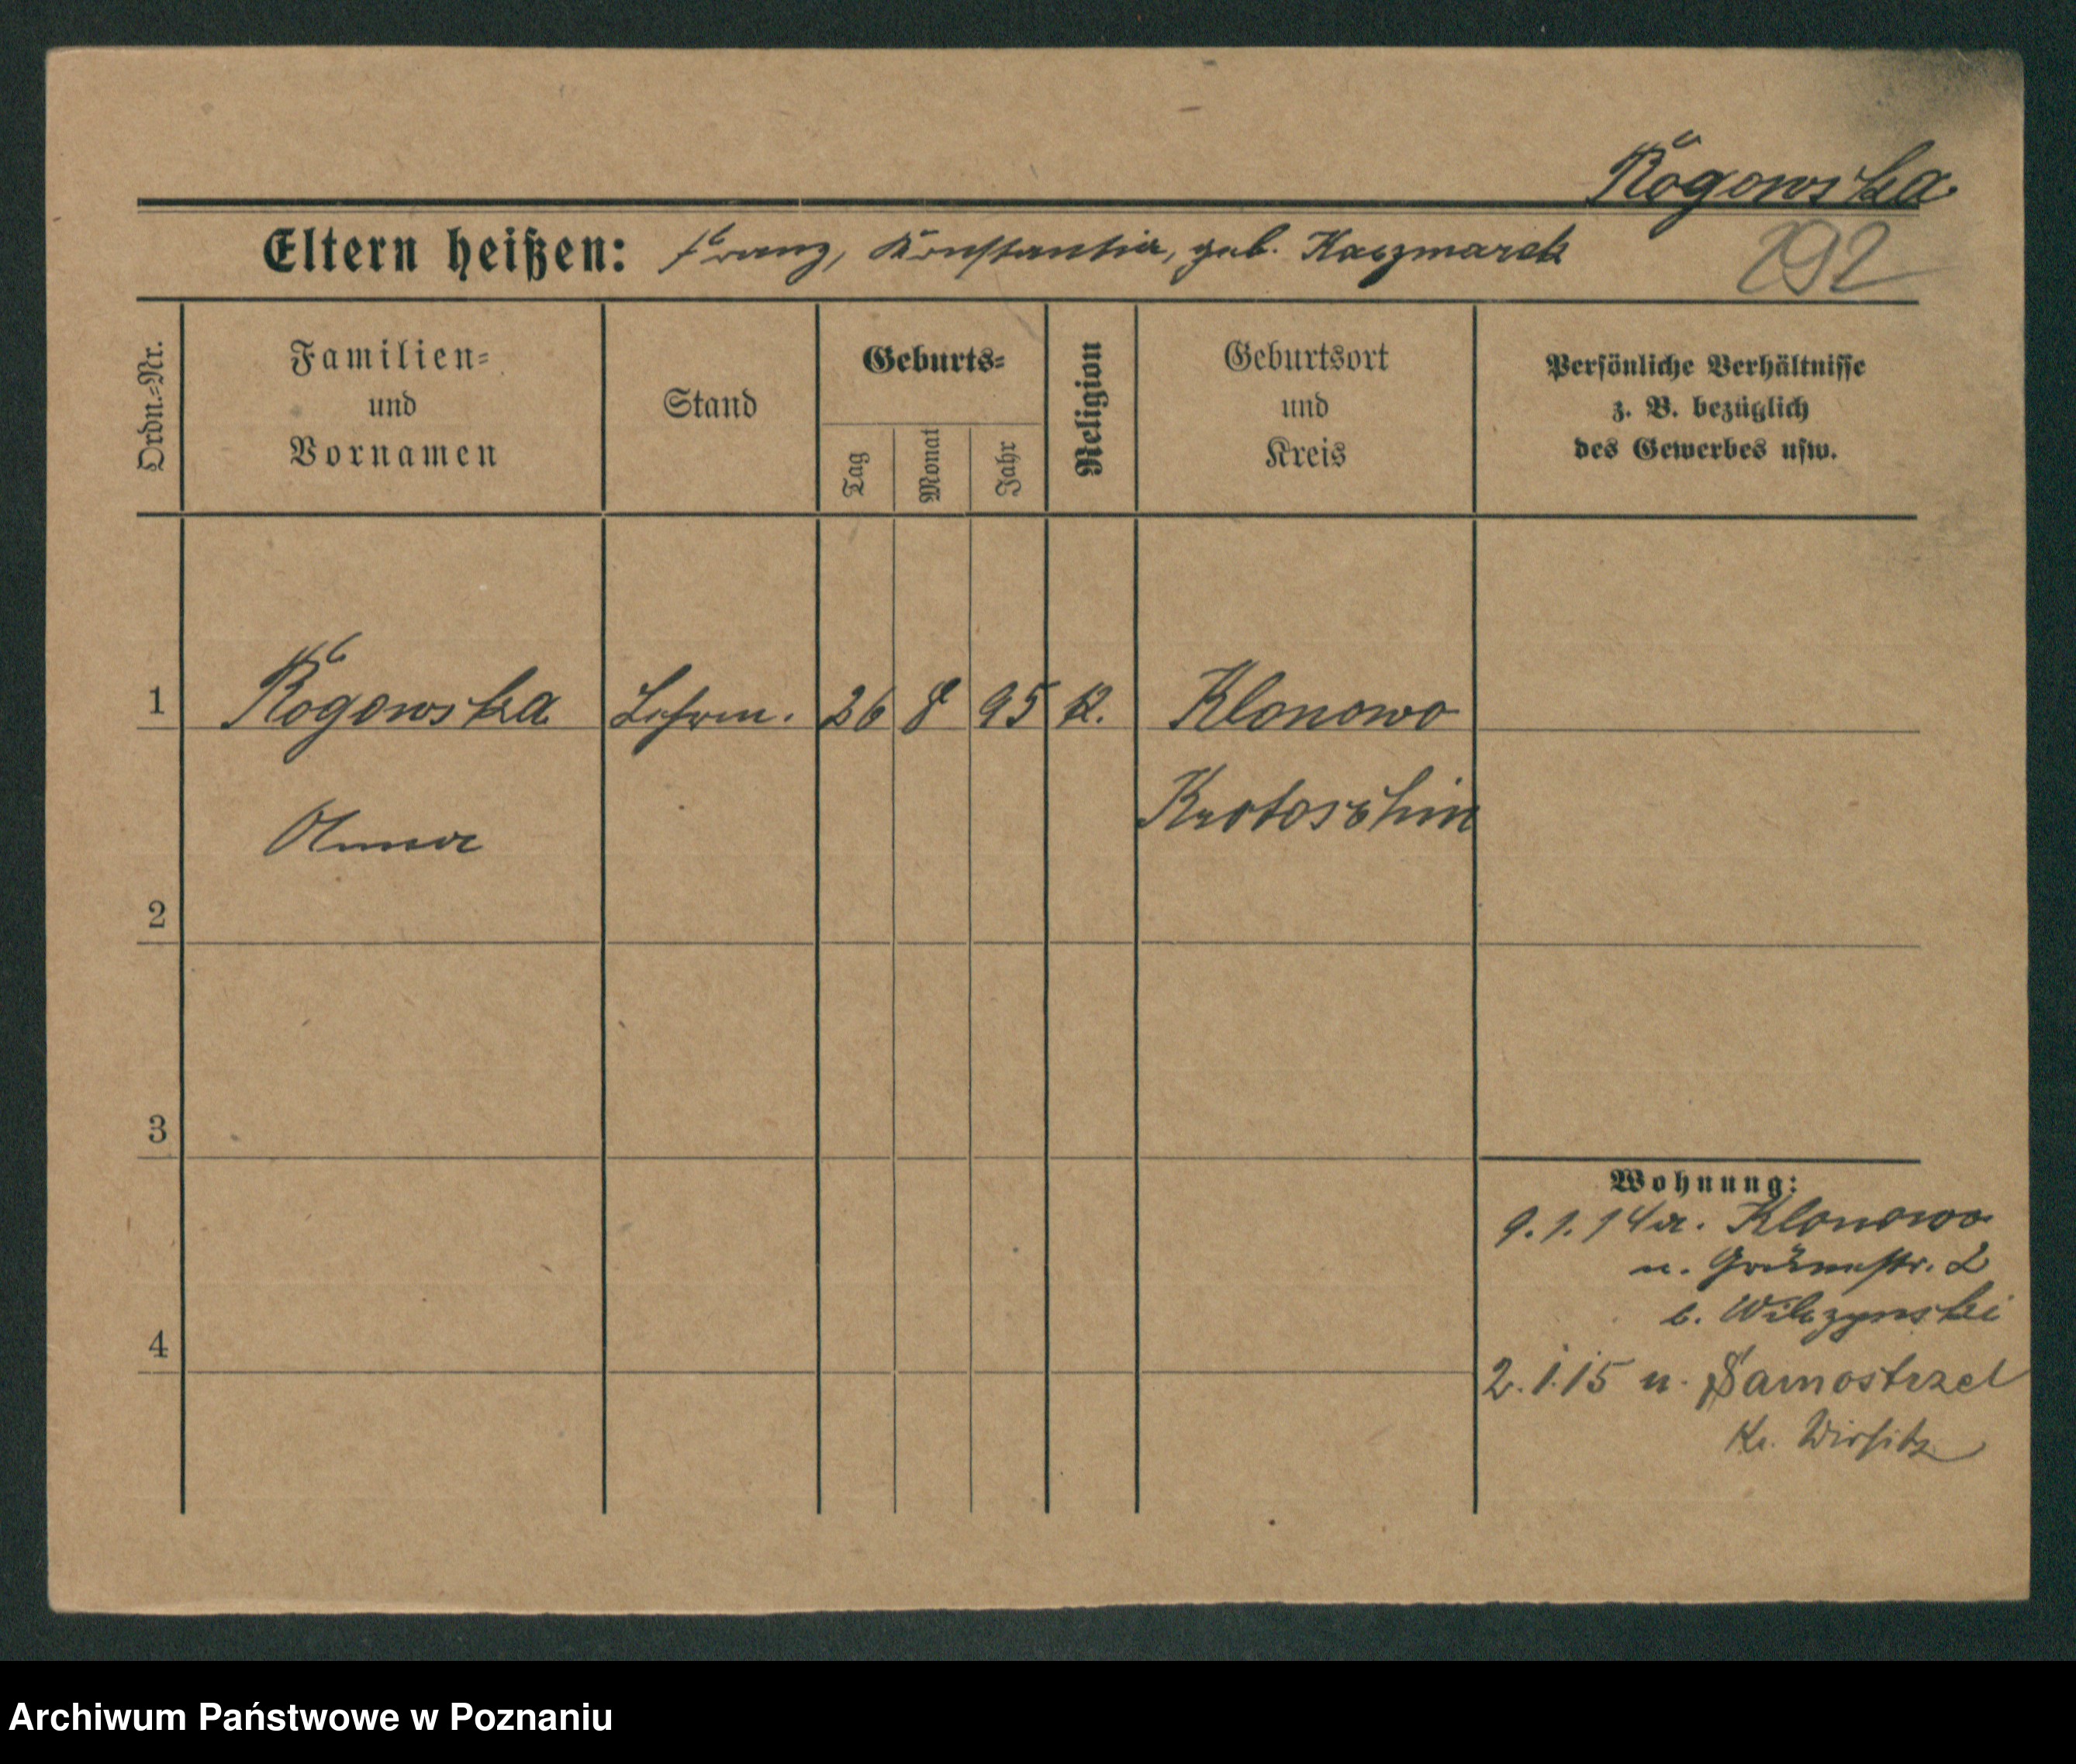 Rogowska
Eltern heißen: Franz, Konstantia, geb. Kaczmarek 292
Ordn.=Nr.
Familien=
und
Vornamen
Stand
Geburts=
Tag
Monat
Jahr
Religion
Geburtsort
und
Kreis
Persönliche Verhältnisse
z. B. bezüglich
des Gewerbes usw.
1 Rogowska 26 8 95 K. Klonowo
Anna Krotoschin
2
3
Wohnung:
9.1.14 a. Klonowo
n. Grünestr. 2
b. Wilczynski
4
2.1.15 n. Samostrzel
Kr. Wirsitz
Archiwum Państwowe w Poznaniu